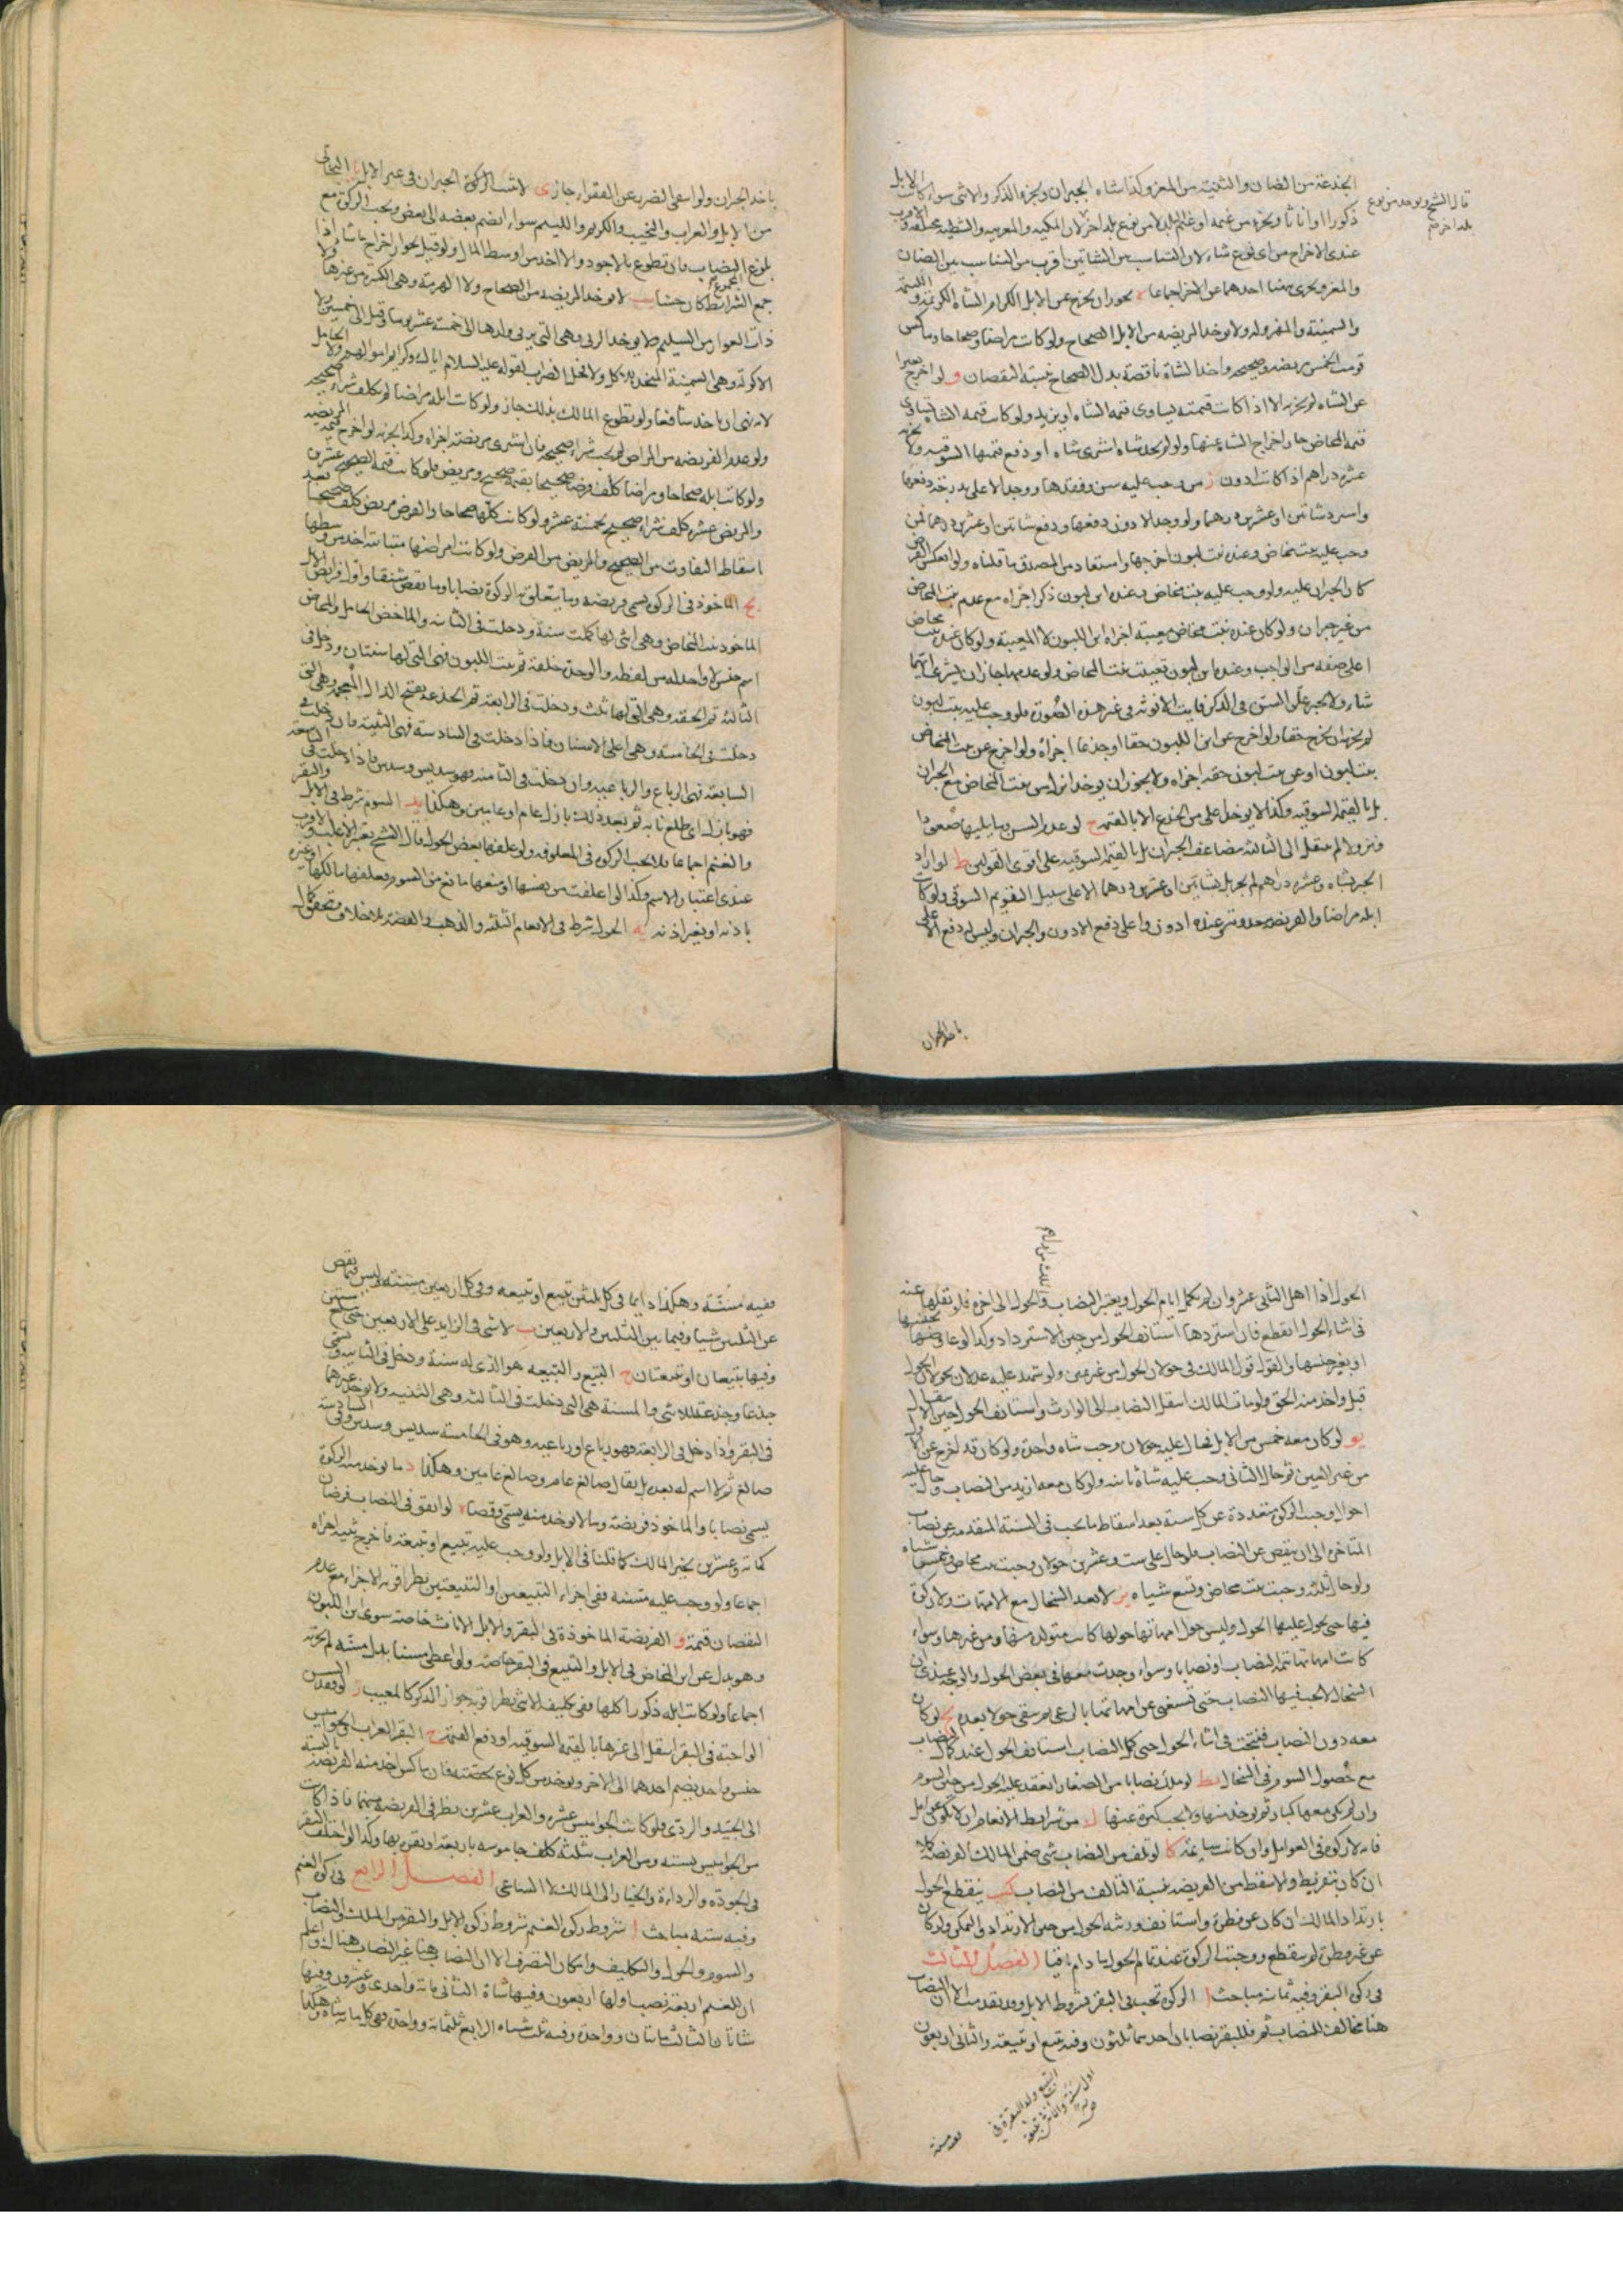 الجذعة من الضان والثنية من المعز وكذا شاه الجبران ويجزء الذكر والانثى سواء كانت الابل
ذكورا او اناثا ويجزء من غنمه او غنم البلد لا من نوع بلد اخر لان المكية والعربية والشطية مختلفة والاقرب
قال الشيخ ويوخذ من نوع
بلد اخر
عندى الاخراج من اى نوع شاء لان التناسب بين الشاتين اقرب من التناسب بين الضان
والمعز ويجزى هنا احدهما عن الاخر اجماعا ه يجوز ان يخرج عن الابل الكرام الشاة الكريمة واللئيمة
والسمينة والمهزولة ولا يوخذ المريضه من الابل الصحاح ولو كانت مراضا وصحاحا وماكس
قومت الخمس مريضه وصحيحه واخذ الشاة ناقصة بدل الصحاح نسبة النقصان و لو اخرج بعيرا
عن الشاه لم يجزه الا اذا كانت قيمته يساوى قيمة الشاه او يزيد ولو كانت قيمه الشاه تساوى
قيمة المخاض جاز اخراج الشاة عنها ولو لم يجد شاه اشترى شاه او دفع قيمتها السوقيه ولا يجزيه
عشره دراهم اذا كانت ادون ز من وجب عليه سن وفقدها ووجد الاعلى بدرجة دفعها
واسترد شاتين او عشرين درهما ولو وجد الادون دفعها ودفع شاتين او عشرين درهما فمن
وجب عليه بنت مخاض وعنده بنت لبون اخرجها واستعاد من المصدق ما قلناه ولو انعكس الفرض
كان الجبران عليه ولو وجب عليه بنت مخاض وعنده ابن لبون ذكر اجزاه مع عدم بنت المخاض
من غير جبران ولو كان عنده بنت مخاض معيبة اجزاه ابن اللبون لا المعيبة ولو كان عنده بنت مخاض
اعلى صفه من الواجب وعنده ابن لبون تعينت بنت المخاض ولو عدمهما جاز ان يشترى ايهما
شاء ولا يجبر علو السن فى الذكر فايت الانوثه فى غير هذه الصورة فلو وجب عليه بنت لبون
لم يجزه ان يخرج حقا ولو اخرج عن ابن اللبون حقا او جذعا اجزاه ولو اخرج عن بنت المخاض
بنت لبون او عن بنت لبون حقه اجزاه ولا يجوز ان يوخذ ابن لبون بنت المخاض مع الجبران
بل بالقيمة السوقيه وكذا لا يوخذ اعلى من الجذع الا بالقيمة ح لو عدم السن وما يليها صعودا
ونزولا لم ينتقل الى الثالثه مضاعف الجبران بل بالقيمة السوقيه على اقوى القولين ط لو اراد
الجبر بشاه وعشره دراهم لم يجز بل بشاتين او عشرين درهما الا على سبيل التقويم السوقى ولو كانت
ابله مراضا والفريضه معدومه وعنده ادون واعلى دفع الادون والجبران وليس له دفع الاعلى
ياخذ الجبران
ياخذ الجبران ولو اسقى الضرر عن الفقراء جاز ى لا تثبت الزكوة الجبران فى غير الابل يا البخاتى
من الابل والعراب والنجيب والكريم واللئيم سواء يضم بعضه الى بعض وتجب الزكوة مع
بلوغ النصاب فان تطوع بالاجود والا اخذ من اوسط المال ولو قيل بجواز اخراج ما شاء اذا
جمع الشرائط كان حسنا يب لا توخذ المريضه من الصحاح ولا الهرمة وهى الكبيرة من غيرها ولا
ذات العوار من السليم ولا يوخذ الربى وهى التى يربى ولدها الى خمسة عشر يوما وقيل الى خمسين ولا
الاكولة وهى السمينة المتخذة للاكل ولا فحل الضراب لقوله عليه السلام اياك وكرايم اموالهم ولا الحامل
لانه نهى ان ياخذ شافعا ولو تطوع المالك بذلك جاز ولو كانت ابله مراضا لم يكلف شراء صحيحه
ولو عدم الفريضه من المراض لم يجب شراء صحيحه فان اشترى مريضة اجزاه وكذا يجزيه لو اخرج قيمة المريضه
ولو كانت ابله صحاحا ومراضا كلف فرضا صحيحا بقيمة صحيح ومريض فلو كانت قيمة الصحيح عشرين
والمريض عشره كلف شراء صحيح بخمسة عشر ولو كانت كلها صحاحا والفرض مريض كلف صحيحا بعد
اسقاط التفاوت من الصحيح والمريض من الفرض ولو كانت امراضها متباينة اخذ من وسطها
يج الماخوذ فى الزكوة يسمى فريضه وما يتعلق به الزكوة نصابا وما نقص شنقا واول فرايض الابل
الماخوذ بنت المخاض وهى انثى لها كملت سنة ودخلت فى الثانيه والماخض الحامل والمخاض
اسم جنس لا واحد له من لفظه والواحدة خلفة ثم بنت اللبون فهى التى لها سنتان ودخلت فى
الثالثة ثم الحقه وهى التى لها ثلث ودخلت فى الرابعة ثم الجذعه بفتح الذال المعجمه وهى التى
دخلت فى الخامسه وهى اعلى الاسنان فاذا دخلت فى السادسة فهى الثنية فان دخلت فى
السابعه فهى الرباع والرباعيه وان دخلت فى الثامنه فهو سديس وسدس فاذا دخلت فى التاسعه
فهو بازل اى طلع نابه ثم بعد ذلك بازل عام او عامين وهكذا يد السوم شرط فى الابل والبقر
والغنم اجماعا فلا تجب الزكوه فى المعلوفه ولو علفها بعض الحول قال الشيخ يعتبر الاغلب والاقرب
عندى اعتبار الاسم وكذا لو اعتلفت من نفسها او منعها مانع من السوم يعلفها مالكها او غيره
باذنه او بغير اذنه يه الحول شرط فى الانعام الثلثه والذهب والفضة بلا خلاف ويتحقق كمال
ثلث من ابراهيم
الحول اذا اهل الثانى عشر وان لم تكمل ايام الحول ويعتبر النصاب والحول الى اخره فلو نقلها عنه
فى اثناء الحول انقطع فان استردها استانف الحول من حين الاسترداد وكذا لو عاوضها بجنسها
او بغير جنسها والقول قول المالك فى حولان الحول من غير يمين ولو شهد عليه عدلان بحولان الحول
قبل واخذ منه الحق ولو مات المالك انتقل النصاب الى الوارث واستانف الحول حين الانتقال
يو لو كان معه خمس من الابل فحال عليه حولان وجب شاه واحدة ولو كان قد اخرج عن الاول
من غير العين ثم حال الثانى وجب عليه شاة ثانيه ولو كان معه ازيد من النصاب وحال عليه
احوال وجبت الزكوة متعددة عن كل سنة بعد اسقاط ما يجب فى السنة المتقدمه عن نصاب
المتاخرة الى ان ينقص عن النصاب فلو حال على ست وعشرين حولان وجبت بنت مخاض وخمس شياه
ولو حال ثلثه وجبت بنت مخاض وتسع شياه يز لا تعد السخال مع الامهات ولا زكوة
فيها حتى يحول عليها الحول وليس حول امهاتها حولها كانت متولده منها او من غيرها وسواء
كانت امهاتها تتمة النصاب او نصابا وسواء وجدت معها فى بعض الحول والوجه عندى ان
السخال لا تجب فيها النصاب حتى تستغنى عن امهاتها بالرعى ثم يبقى حولا بعده يح لو كان
معه دون النصاب فنتجت فى اثناء الحول حتى كمل النصاب استانف الحول عند كمال النصاب
مع حصول السوم فى السخال يط لو ملك نصابا من الصغار انعقد عليه الحول من حين السوم
وان لم يكن معها كبار ثم يوخذ منها ولا تجب كبيرة عنها ك من شرايط الانعام ان لا تكون عوامل
فانه لا زكوة فى العوامل وان كانت سايمة كا لو تلف من النصاب شى ضمن المالك الفريضة كلها
ان كان بتفريط والا سقط من الفريضه نسبة التالف من النصاب كب ينقطع الحول
بارتداد المالك ان كان عن فطرة واستانف ورثته الحول من حين الارتداد والتمكن ولو كان
عن غير فطرة لم ينقطع ووجبت الزكوة عند تمام الحول ما دام باقيا الفصل الثالث
فى زكوة البقر وفيه ثمانيه مباحث ا الزكوة تجب فى البقر بشروط الابل وقد تقدمت الا ان النصاب
هنا مخالف للنصاب ثم فللبقر نصابان احدهما ثلثون وفيه تبيع او تبيعة والثانى اربعون
التبيع ولد البقرة فى
اول سنة والانثى تبيعة
وفيه مسنة
وفيه مسنة وهكذا دايما فى كل ثلثين تبيع او تبيعه وفى كل اربعين مسنة وليس فيما نقص
عن الثلثين شيا وفيما بين الثلثين والاربعين ب لا شى فى الزايد على الاربعين حتى تبلغ ستين
وفيها تبيعان او تبيعتان ج التبيع والتبيعه هو الذى له سنة ودخل فى الثانيه ويسمى
جذعا وجذعة للانثى والمسنة هى التى دخلت فى الثالثه وهى الثنيه ولا يوخذ غيرهما
فى البقر واذا دخل فى الرابعة فهو رباع او رباعيه وهو فى الخامسة سديس وسدس وفى السادسة
صالغ ثم لا اسم له بعده بل يقال صالغ عام وصالغ عامين وهكذا د ما توخذ منه الزكوة
يسمى نصابا والماخوذ فريضة وما لا يوخذ منه يسمى وقصا ه لو اتفق فى النصاب فرضان
كمائة وعشرين يخير المالك كما قلنا فى الابل ولو وجب عليه تبيع او تبيعة فاخرج ثنية اجزاه
اجماعا ولو وجب عليه مسنة ففى اجزاء التبيعين او التبيعتين نظر اقربه الاجزاء مع عدم
النقصان قيمة و الفريضة الماخوذة فى البقر والابل الاناث خاصة سوى ابن اللبون
وهو بدل عن ابن المخاض فى الابل والتبيع فى البقر خاصة ولو اعطى مسنا بدل مسنة لم يجزه
اجماعا ولو كانت ابله ذكورا كلها ففى تكليف الانثى نظر اقربه جواز الذكر كالمعيب ز لو فقد السن
الواجبة فى البقر انتقل الى غيرها بالقيمة السوقيه او دفع القيمة ح البقر العراب والجواميس
جنس واحد يضم احدهما الى الاخر ويوخذ من كل نوع بحصته فان ماكس اخذ منه الفريضه بالنسبة
الى الجيد والردى فلو كانت الجواميس عشره والعراب عشرين نظر فى الفريضه منهما فاذا كانت
من الجواميس بستة ومن العراب بثلثة كلف جاموسه باربعة او بقرة بها وكذا لو اختلف البقر
فى الجوده والرداءة والخيار الى المالك لا الساعى الفصل الرابع فى زكوة الغنم
وفيه ستة مباحث ا شروط زكوة الغنم شروط زكوة الابل والبقر من الملك والنصاب
والسوم والحول والتكليف وامكان التصرف الا ان النصاب هنا غير النصاب هناك واعلم
ان للغنم اربعة نصب اولها اربعون وفيها شاة الثانى مائة واحدى وعشرون وفيها
شاتان الثالث مائتان وواحدة وفيه ثلث شياه الرابع ثلثمائة وواحدة ففى كل مائة شاة وهكذا